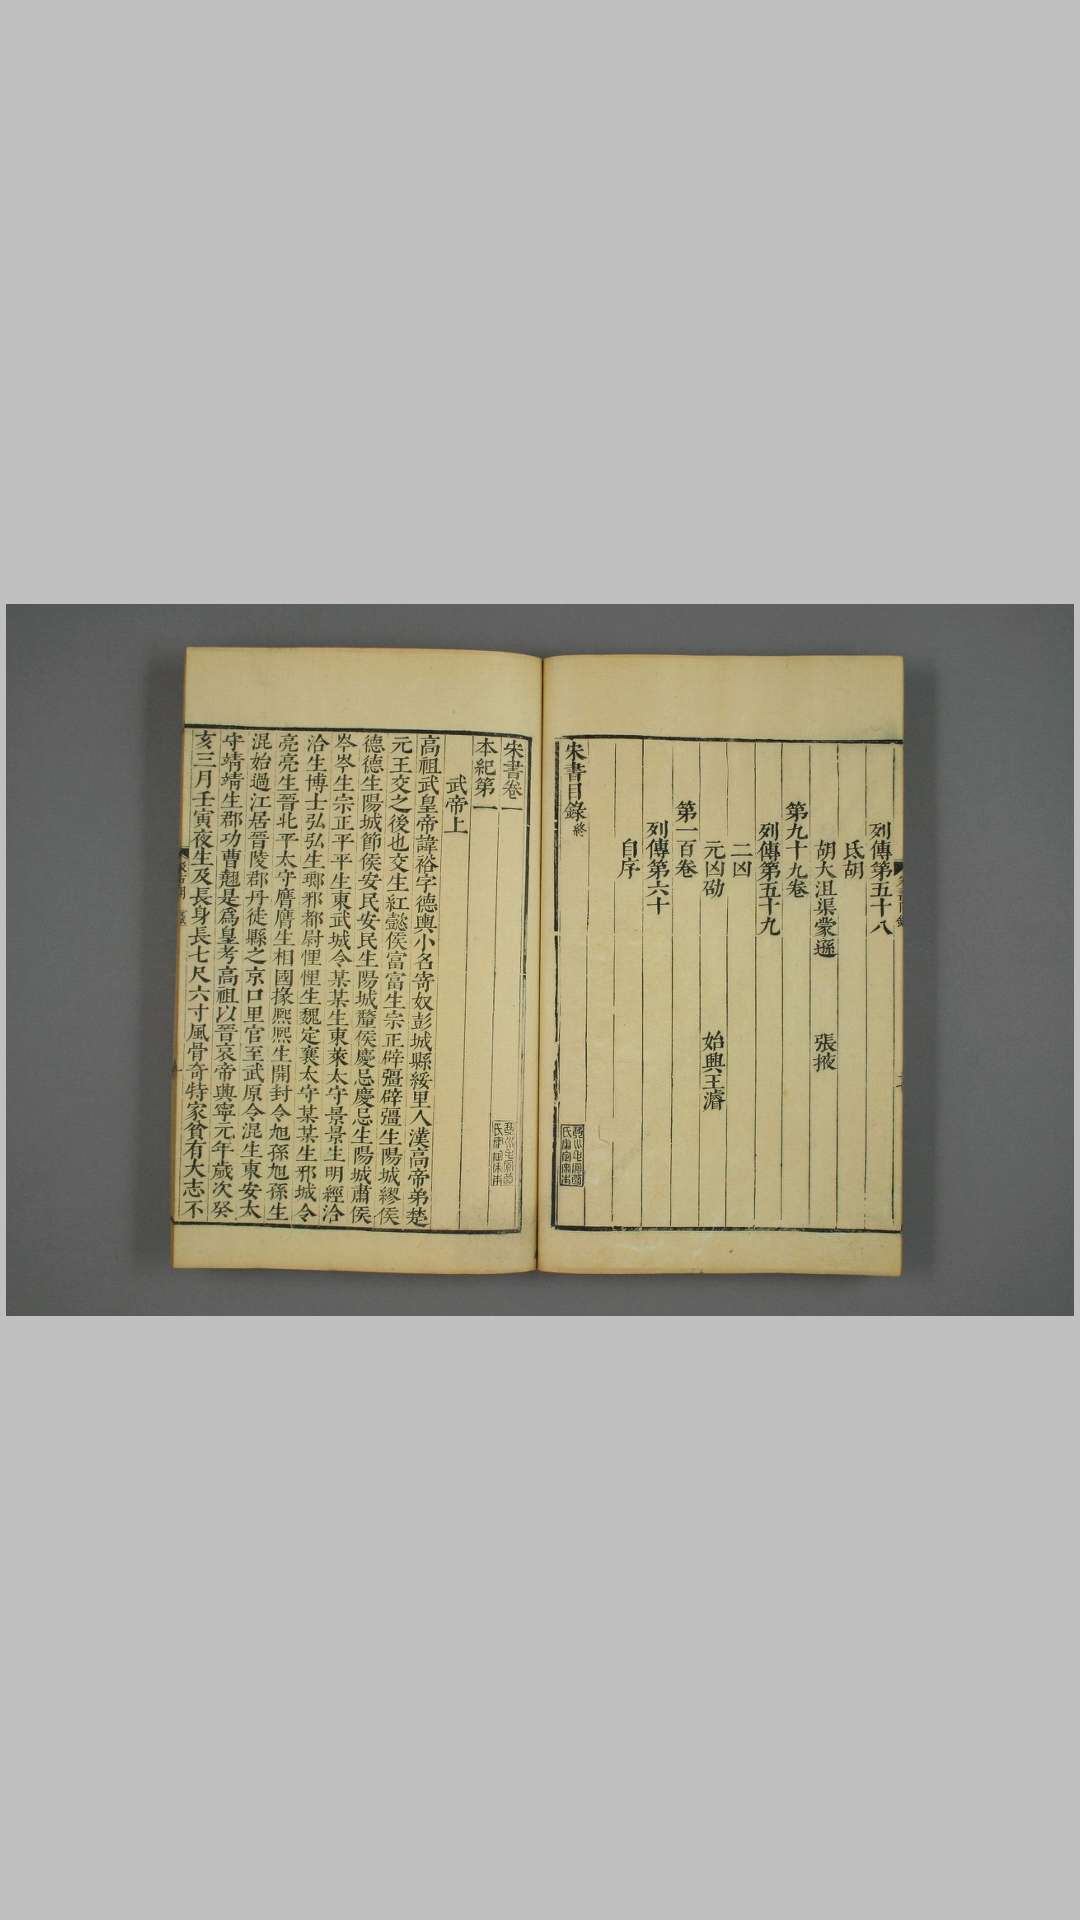 列傳第五十八
氐胡
胡大沮渠蒙遜 張掖
第九十九卷
列傳第五十九
二凶
元凶劭 始興王濬
第一百卷
列傳第六十
自序
宋書目錄終
宋書卷一
本紀第一
武帝上
高祖武皇帝諱裕字德輿小名寄奴彭城縣綏里人漢高帝弟楚
元王交之後也交生紅懿侯富富生宗正辟彊辟彊生陽城繆侯
德德生陽城節侯安民安民生陽城釐侯慶忌慶忌生陽城肅侯
岑岑生宗正平平生東武城令某某生東萊太守景景生明經洽
洽生博士弘弘生瑯邪都尉悝悝生魏定襄太守某某生邪城令
亮亮生晉北平太守膺膺生相國掾熙熙生開封令旭孫旭孫生
混始過江居晉陵郡丹徒縣之京口里官至武原令混生東安太
守靖靖生郡功曹翹是爲皇考高祖以晉哀帝興寧元年歲次癸
亥三月壬寅夜生及長身長七尺六寸風骨奇特家貧有大志不